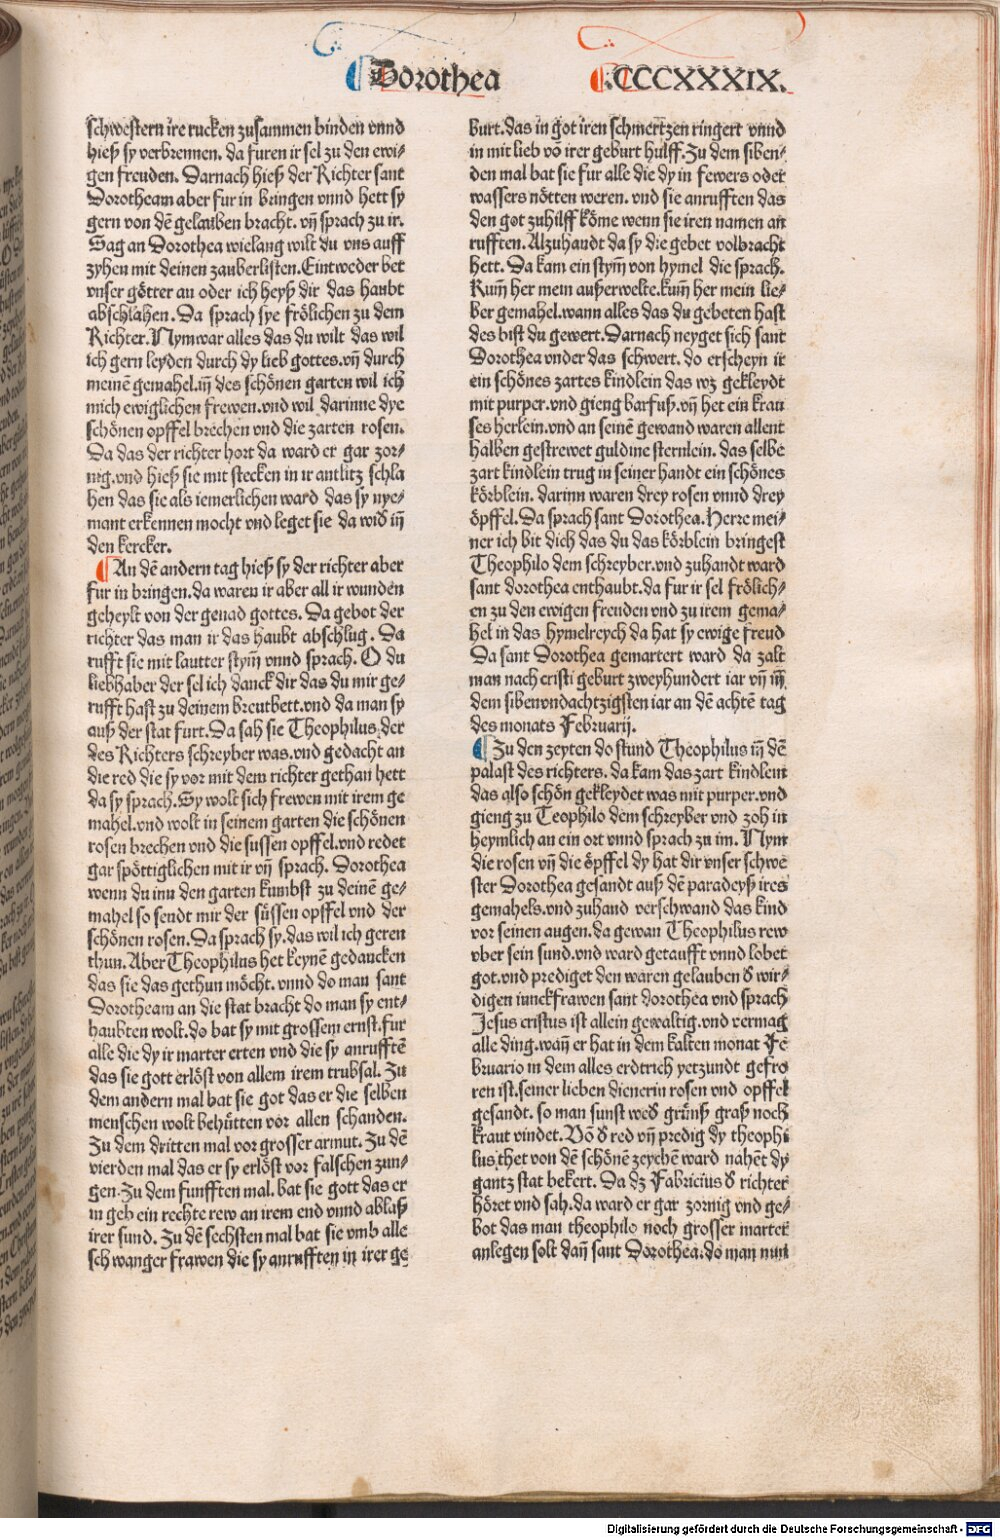 Dorothea .CCCXXXIX.
schwestern ire rucken zusammen binden vnnd
hieß sy verbrennen. da furen ir sel zu den ewi⸗
gen freuden. Darnach hieß der Richter sant
Dorotheam aber fur in bringen vnnd hett sy
gern von dē gelauben bracht. vn̄ sprach zu ir.
Sag an Dorothea wielang wilt du vns auff
zyhen mit deinen zauberlisten. Eintweder bet
vnser götter an oder ich heyß dir das haubt
abschlahen. Da sprach sye frölichen zu dem
Richter. Nymwar alles das du wilt das wil
ich gern leyden durch dy lieb gottes. vn̄ durch
meinē gemahel. in̄ des schönen garten wil ich
mich ewiglichen frewen. vnd wil darinne dye
schönen opffel brechen vnd die zarten rosen.
Da das der richter hort da ward er gar zor⸗
nig. vnd hieß sie mit stecken in ir antlitz schla
hen das sie als iemerlichen ward das sy nye⸗
mant erkennen mocht vnd leget sie da wið in̄
den kercker.
An dē andern tag hieß sy der richter aber
fur in bringen. da waren ir aber all ir wunden
geheylt von der genad gottes. Da gebot der
richter das man ir das haubt abschlug. Da
rufft sie mit lautter stym̄ vnnd sprach. O du
liebhaber der sel ich danck dir das du mir ge⸗
rufft hast zu deinem breutbett. vnd da man sy
auß der stat furt. Da sah sie Theophilus der
des Richters schreyber was. vnd gedacht an
die red die sy vor mit dem richter gethan hett
da sy sprach. Sy wolt sich frewen mit irem ge
mahel. vnd wolt in seinem garten die schönen
rosen brechen vnd die sussen opffel. vnd redet
gar spöttiglichen mit ir vn̄ sprach. Dorothea
wenn du inn den garten kumbst zu deinē ge⸗
mahel so sendt mir der süssen opffel vnd der
schönen rosen. Da sprach sy. das wil ich geren
thun. Aber Theophilus het keynē gedancken
das sie das gethun möcht. vnnd do man sant
Dorotheam an die stat bracht do man sy ent⸗
haubten wolt. do bat sy mit grossem ernst. fur
alle die dy ir marter erten vnd die sy anrufftē
das sie gott erlöst von allem irem trubsal. Zu
dem andern mal bat sie got das er die selben
menschen wolt behütten vor allen schanden.
Zu dem dritten mal vor grosser armut. Zu dē
vierden mal das er sy erlöst vor falschen zun⸗
gen. Zu dem funfften mal. bat sie gott das er
in geb ein rechte rew an irem end vnnd ablaß
irer sund. Zu dē sechsten mal bat sie vmb alle
schwanger frawen die sy anrufften in irer ge
burt. das in got iren schmertzen ringert vnnd
in mit lieb vō irer geburt hulff. Zu dem siben⸗
den mal bat sie fur alle die dy in fewers oder
wassers nötten weren. vnd sie anrufften das
den got zuhilff köme wenn sie iren namen an
rufften. Alzuhandt da sy die gebet volbracht
hett. Da kam ein stym̄ von hymel die sprach.
Kum̄ her mein außerwelte. kum̄ her mein lie⸗
ber gemahel. wann alles das du gebeten hast
des bist du gewert. Darnach neyget sich sant
Dorothea vnder das schwert. do erscheyn ir
ein schönes zartes kindlein das wz gekleydt
mit purper. vnd gieng barfuß. vn̄ het ein krau
ses herlein. vnd an seinē gewand waren allent
halben gestrewet guldine sternlein. das selbe
zart kindlein trug in seiner handt ein schönes
körblein. darinn waren drey rosen vnnd drey
öpffel. Da sprach sant Dorothea. Herre mei⸗
ner ich bit dich das du das körblein bringest
Theophilo dem schreyber. vnd zuhandt ward
sant dorothea enthaubt. da fur ir sel frölich⸗
en zu den ewigen freuden vnd zu irem gema⸗
hel in das hymelreych da hat sy ewige freud
Da sant Dorothea gemartert ward da zalt
man nach cristi geburt zweyhundert iar vn̄ in̄
dem sibenvndachtzigsten iar an dē achtē tag
des monats Februarij.
Zu den zeyten do stund Theophilus in̄ dē
palast des richters. da kam das zart kindlein
das also schön gekleydet was mit purper. vnd
gieng zu Teophilo dem schreyber vnd zoh in
heymlich an ein ort vnnd sprach zu im. Nym
die rosen vn̄ die öpffel dy hat dir vnser schwe
ster Dorothea gesandt auß dē paradeyß ires
gemahels. vnd zuhand verschwand das kind
vor seinen augen. da gewan Theophilus rew
vber sein sund. vnd ward getaufft vnnd lobet
got. vnd prediget den waren gelauben ð wir⸗
digen iunckfrawen sant dorothea vnd sprach
Jesus cristus ist allein gewaltig. vnd vermag
alle ding. wan̄ er hat in dem kalten monat Fe
bruario in dem alles erdtrich yetzundt gefro
ren ist. seiner lieben dienerin rosen vnd opffel
gesandt. so man sunst weð grünß graß noch
kraut vindet. Vō ð red vn̄ predig dy theophi
lus thet von dē schönē zeychē ward nahēt dy
gantz stat bekert. Da dz Fabricius ð richter
höret vnd sah. da ward er gar zornig vnd ge⸗
bot das man theophilo noch grosser marter
anlegen solt dan̄ sant Dorothea. do man nun
Digitalisierung gefördert durch die Deutsche Forschungsgemeinschaft - DFG